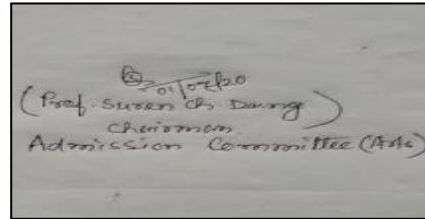 01/07/20
(Prof. Suren Ch Daung)
Chairman
Admission Committee (Arts)